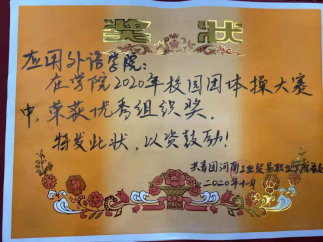 奖状
应用外语学院：
在学院2020年校园团体操大赛
中，荣获优秀组织奖。
特发此状，以资鼓励！
共青团河南工业贸易职业学院委
2020年十一月